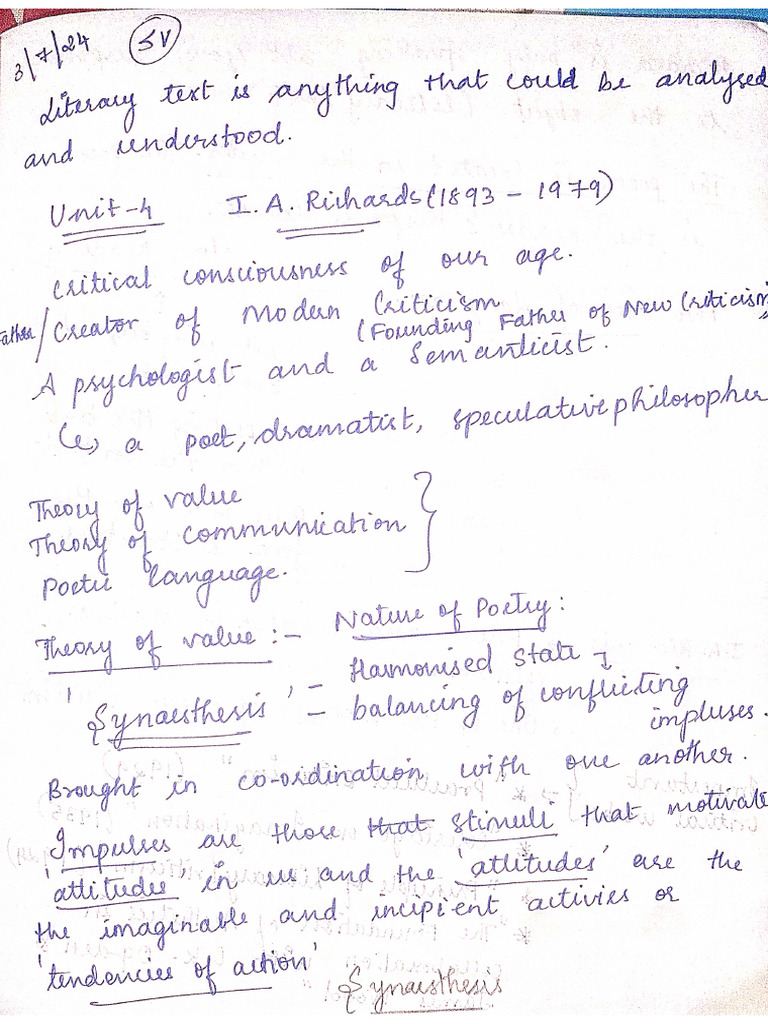 3/7/24 SV
Literary text is anything that could be analysed
and understood.
Unit-4 I. A. Richards (1893 - 1979)
critical consciousness of our age.
Father/Creator of Modern Criticism
(Founding Father of New Criticism)
A psychologist and a Semanticist.
a poet, dramatist, speculative philosopher
Theory of value
Theory of communication
Poetic language.
Theory of value :- Nature of Poetry:
'Synaesthesis' = Harmonised State
= balancing of conflicting
impluses.
Brought in co-ordination with one another.
'Impulses are those that stimuli that motivate
attitudes' in us and the 'attitudes' are the
the imaginable and incipient activies or
'tendencies of action'
Synaesthesis